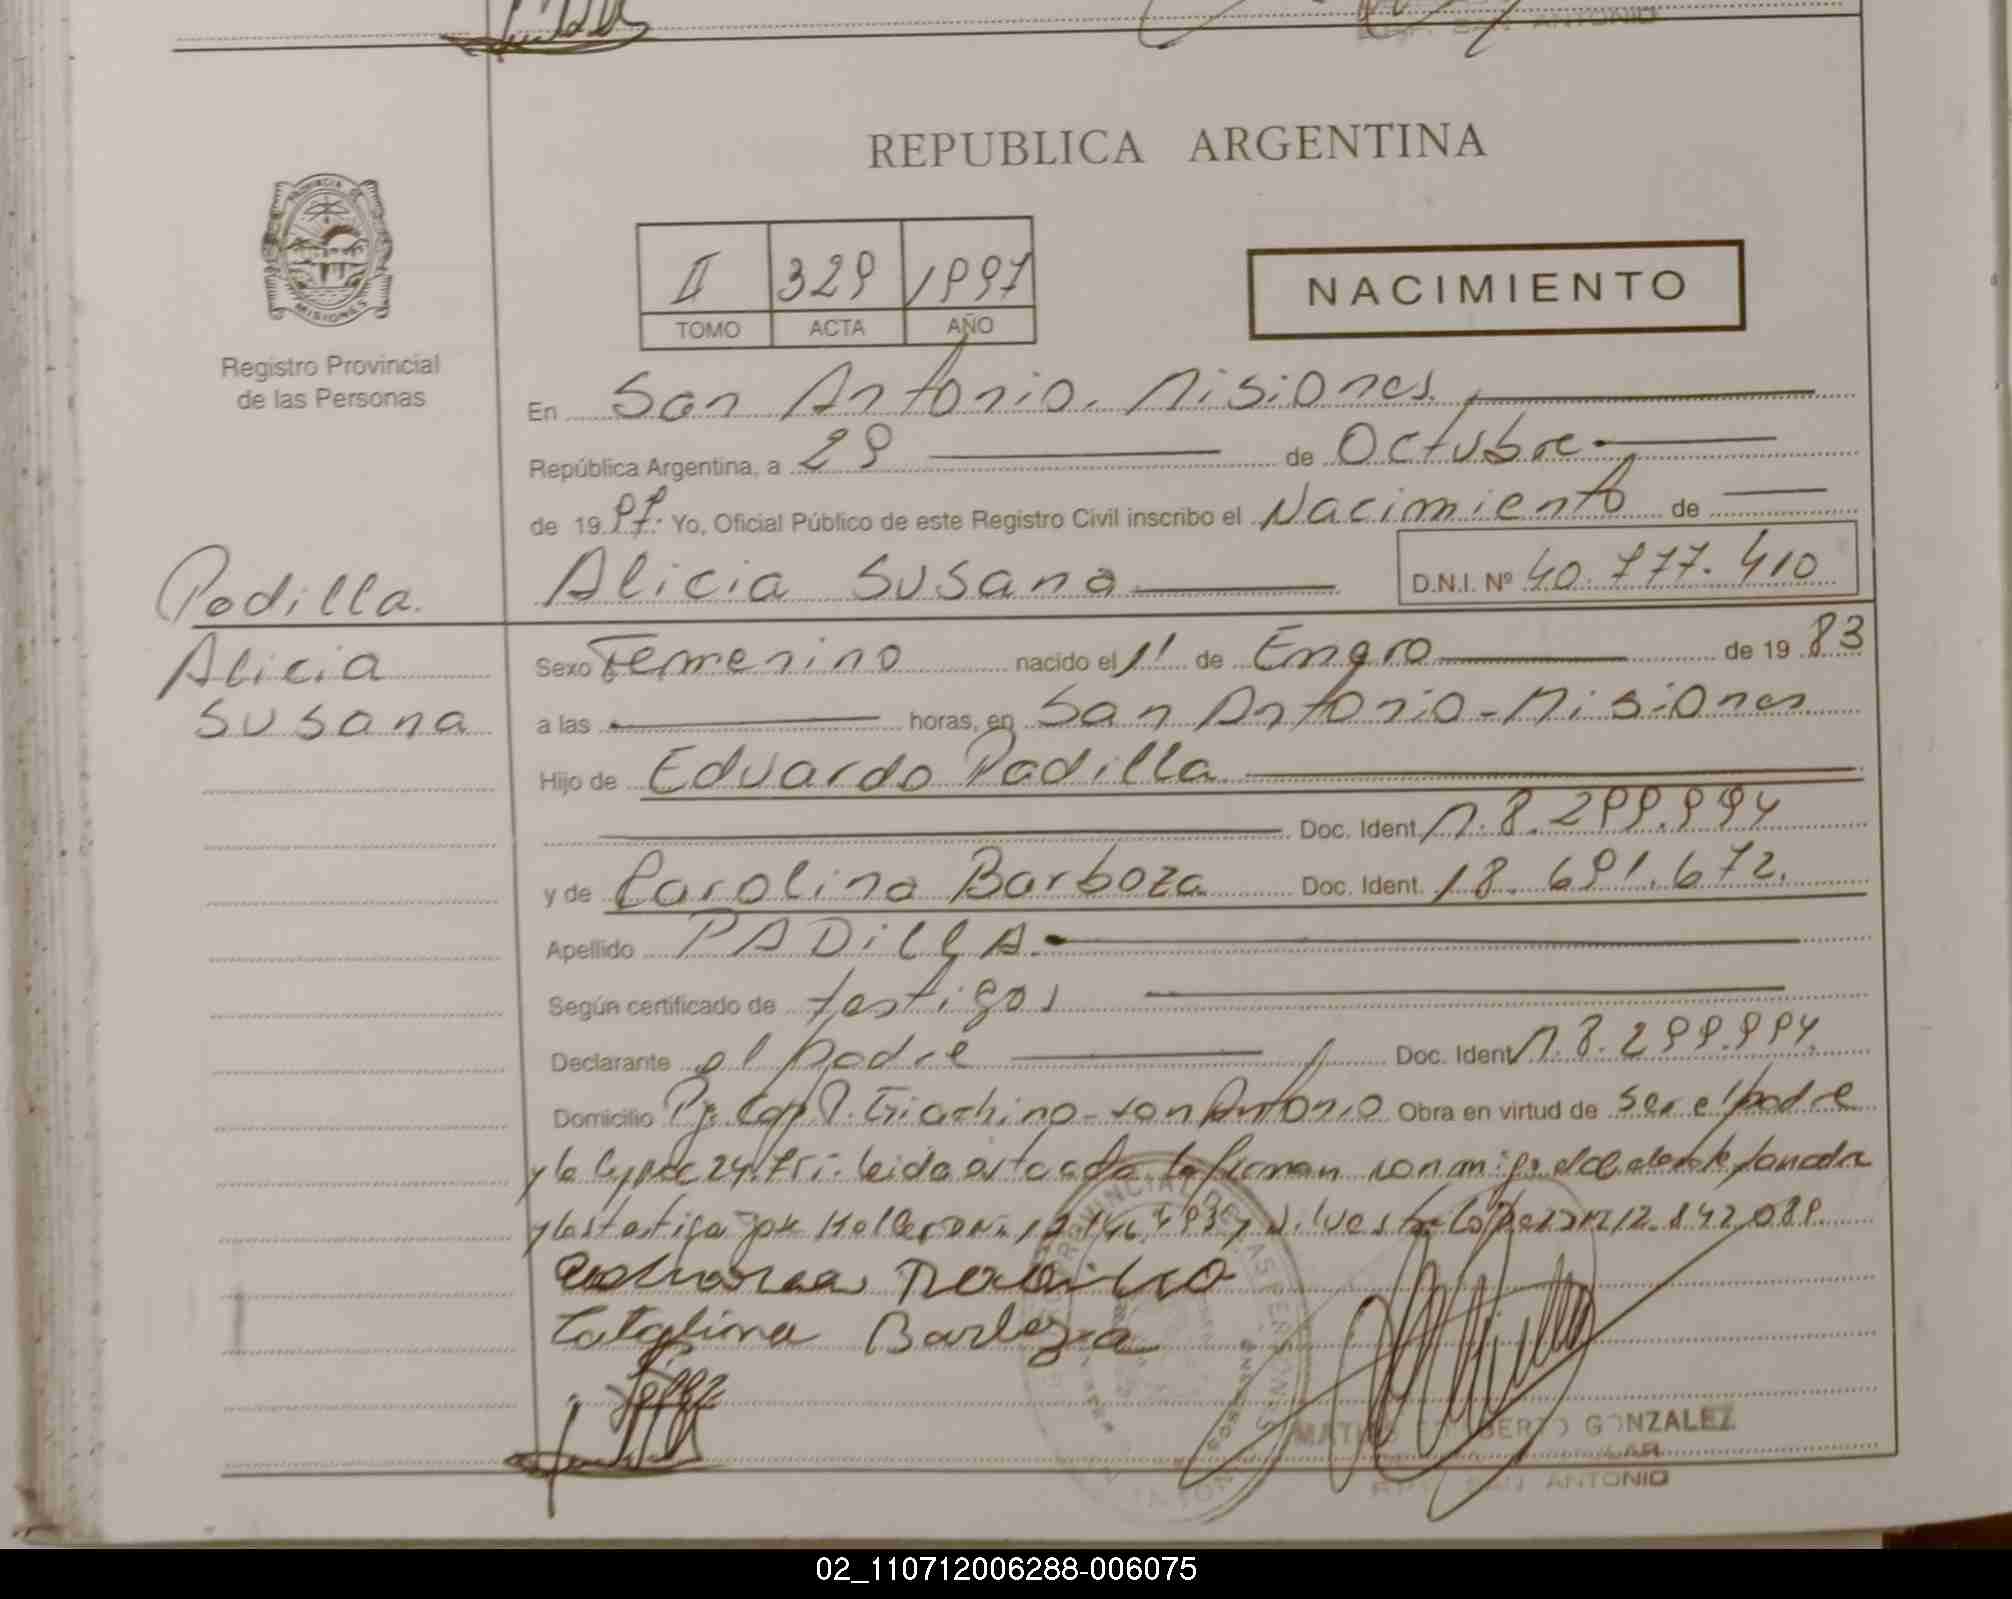 SAN ANTONIO
REPUBLICA ARGENTINA
PROVINCIA DE
MISIONES
II 329 1997
TOMO ACTA AÑO
NACIMIENTO
Registro Provincial
de las Personas
En San Antonio. Misiones.
República Argentina, a 29 de Octubre
de 1997. Yo, Oficial Público de este Registro Civil inscribo el Nacimiento de
Alicia Susana D.N.I. Nº 40.777.410
Padilla.
Alicia
Susana
Sexo Femenino nacido el 1' de Enero de 1983
a las horas, en San Antonio - Misiones
Hijo de Eduardo Padilla
Doc. Ident. M. 8.299.994
y de Carolina Barboza Doc. Ident. 18.691.672.
Apellido PADILLA.
Según certificado de testigos
Declarante el padre Doc. Ident M. 8.299.994.
Domicilio Pje. San Antonio Obra en virtud de ser el padre
y la leida el acta la firman conmigo el declarante
y los testigos Silvestre Lopez 12.842.089.
Catalina Barboza
GONZALEZ
SAN ANTONIO
02_110712006288-006075